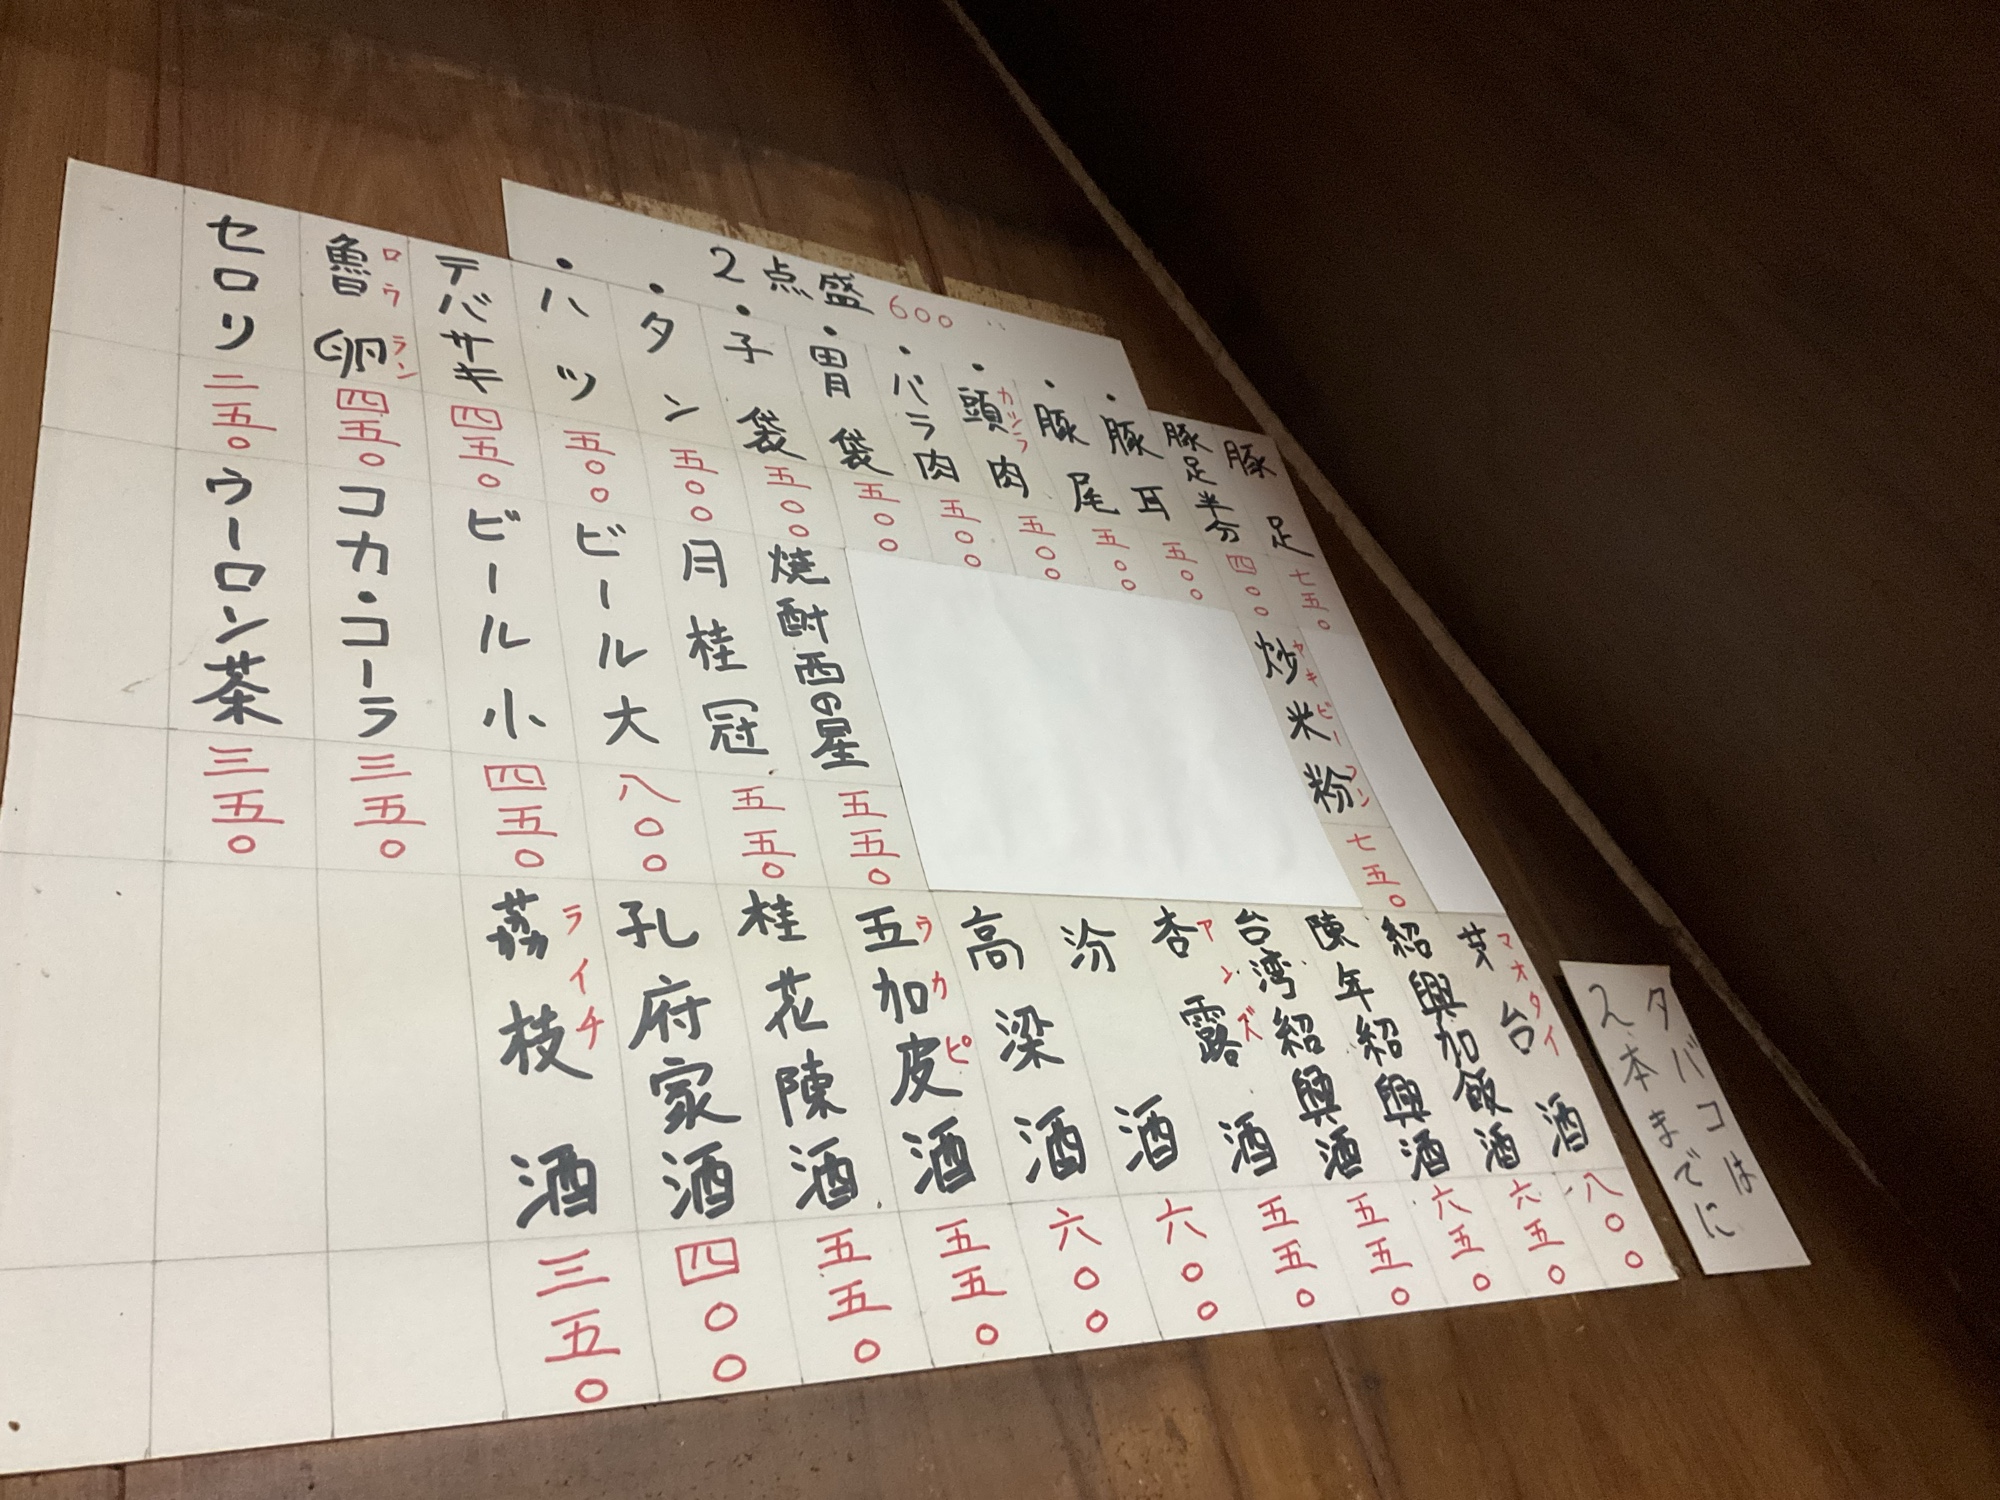 2点盛 600
豚足 七五〇
豚足半分 四〇〇
・豚耳 五〇〇
・豚尾 五〇〇
・頭肉 カシラ 五〇〇
・バラ肉 五〇〇
・胃袋 五〇〇
・子袋 五〇〇
・タン 五〇〇
・ハツ 五〇〇
テバサキ 四五〇
魯卵 ロウラン 四五〇
セロリ 二五〇
炒米粉 ヤキビーフン 七五〇
焼酎西の星 五五〇
月桂冠 五五〇
ビール大 八〇〇
ビール小 四五〇
コカ・コーラ 三五〇
ウーロン茶 三五〇
茅台酒 マオタイ 八〇〇
紹興加飯酒 六五〇
陳年紹興酒 六五〇
台湾紹興酒 五五〇
杏露酒 アンズ 五五〇
汾酒 六〇〇
高梁酒 六〇〇
五加皮酒 ウカピ 五五〇
桂花陳酒 五五〇
孔府家酒 四〇〇
茘枝酒 ライチ 三五〇
タバコは
2本までに